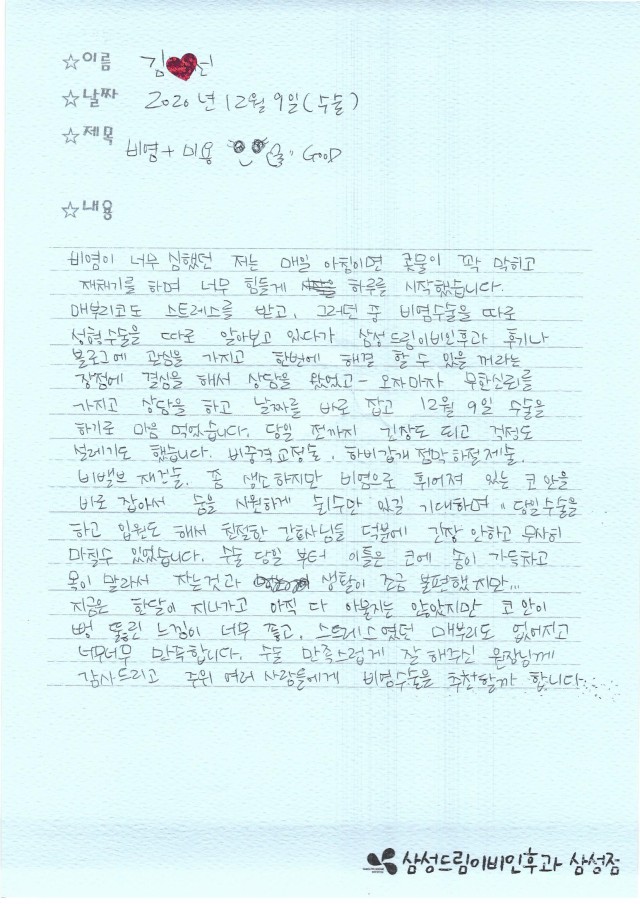 ☆이름 김♥선
☆날짜 2020년 12월 9일(수술)
☆제목
비염+미용 GOOD
☆내용
비염이 너무 심했던 저는 매일 아침이면 콧물이 꽉 막히고
재채기를 하며 너무 힘들게 하루를 시작했습니다.
매부리코도 스트레스를 받고, 그러던 중 비염수술을 따로
성형수술을 따로 알아보고 있다가 삼성드림이비인후과 후기나
블로그에 관심을 가지고 한번에 해결 할 수 있을 꺼라는
장점에 결심을 해서 상담을 왔었고- 오자마자 무한신뢰를
가지고 상담을 하고 날짜를 바로 잡고 12월 9일 수술을
하기로 마음 먹었습니다. 당일 전까지 긴장도 되고 걱정도
설레기도 했습니다. 비중격교정술, 하비갑개점막하절제술,
비밸브 재건술. 좀 생소하지만 비염으로 휘어져 있는 코안을
바로 잡아서 숨을 시원하게 쉴수만 있길 기대하며 당일수술을
하고 입원도 해서 친절한 간호사님들 덕분에 긴장 안하고 무사히
마칠수 있었습니다. 수술 당일 부터 이틀은 코에 솜이 가득차고
목이 말라서 자는것과 생활이 조금 불편했지만...
지금은 한달이 지나가고 아직 다 아물지는 않았지만 코안이
뻥 뚫린 느낌이 너무 좋고, 스트레스였던 매부리도 없어지고
너무너무 만족합니다. 수술 만족스럽게 잘 해주신 원장님께
감사드리고 주위 여러 사람들에게 비염수술을 추천할까 합니다...
삼성드림이비인후과 삼성점